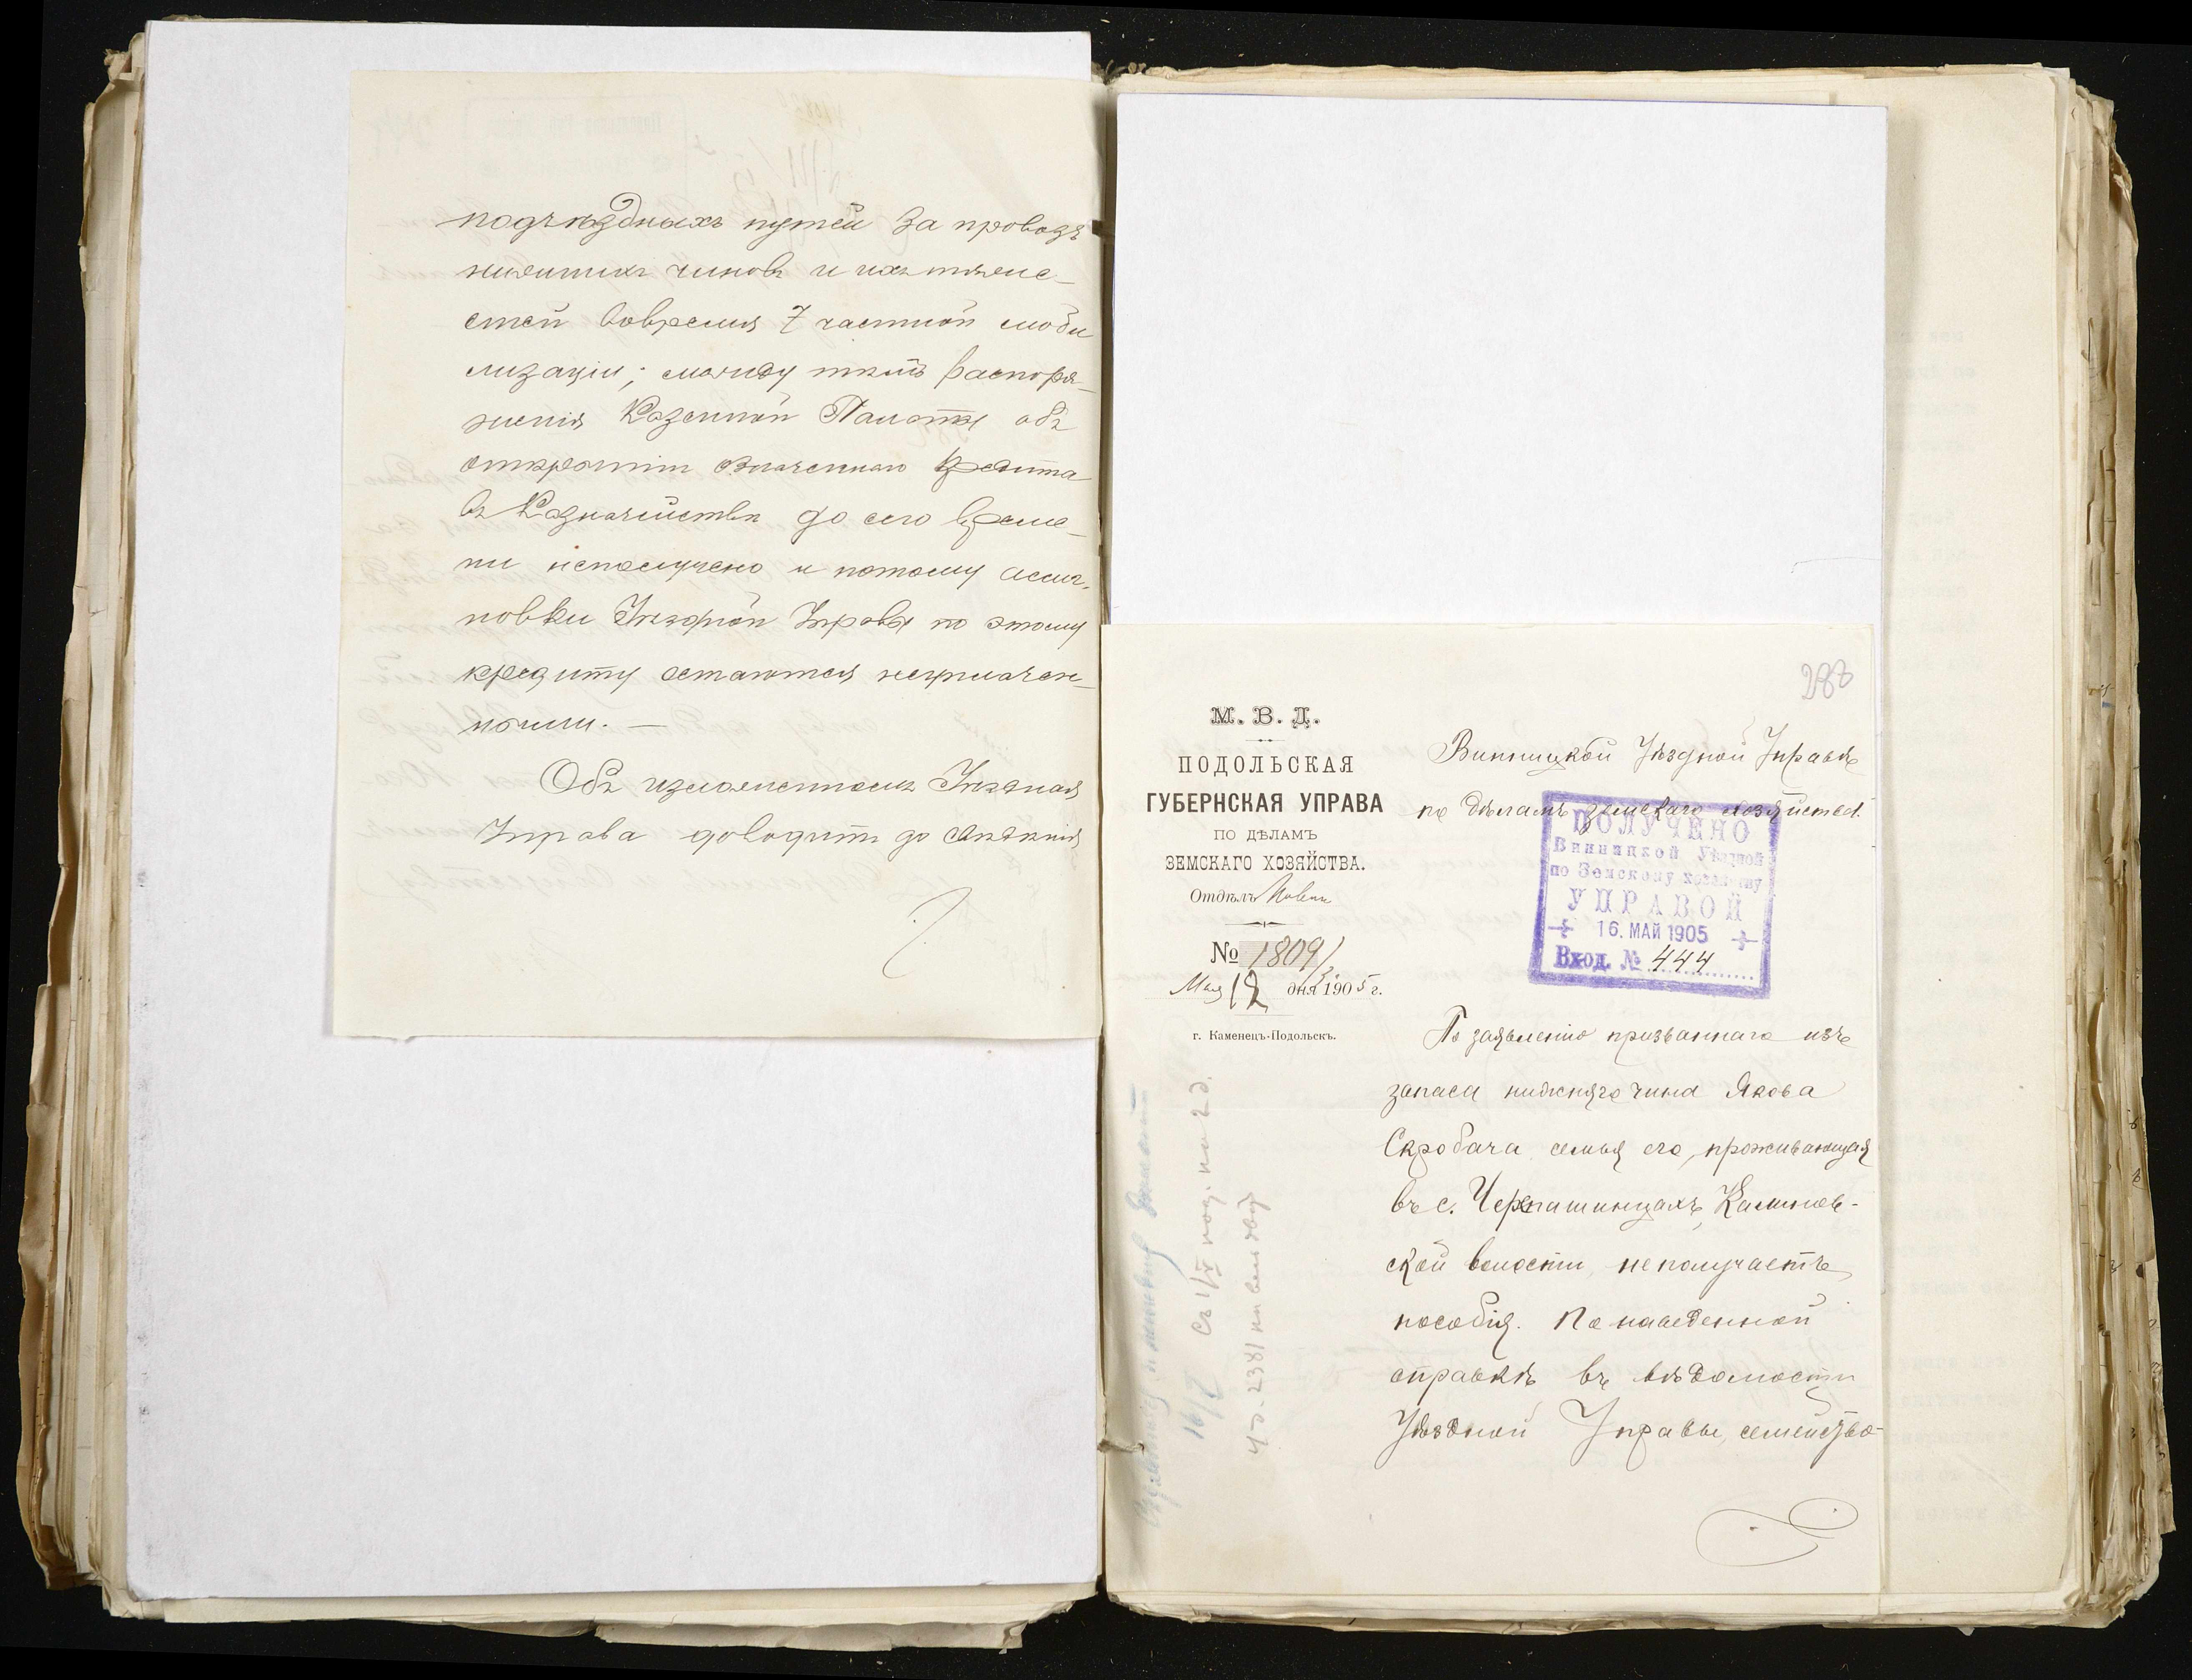 подъѣздныхъ путей за провозъ
нижнихъ чиновъ и ихъ тяже-
стей вовремя 7 частной моби
лизаціи; между тѣмъ распоря-
женія Казенной Палаты объ
открытіи означеннаго кредита
въ Казначействѣ до сего време-
ни неполучено и потому ассиг-
новки Уѣздной Управы по этому
кредиту остаются неуплачен-
ными. —
Объ изложенномъ Уѣздная
Управа доводитъ до свѣдѣнія
288
М. В. Д.
ПОДОЛЬСКАЯ
ГУБЕРНСКАЯ УПРАВА
ПО ДѢЛАМЪ
ЗЕМСКАГО ХОЗЯЙСТВА.
Отдѣлъ
№ 18091
Мая 12 дня 1905 г.
г. Каменецъ-Подольскъ.
Винницкой Уѣздной Управѣ
по дѣламъ земскаго хозяйства.
ПОЛУЧЕНО
Винницкой Уѣздной
по Земскому хозяйству
УПРАВОЙ
16. МАЙ 1905
Вход. № 444
По заявленію призваннаго изъ
запаса нижняго чина Якова
Скробача семья его, проживающая
въ с. Черепашинцахъ, Калинов-
ской волости, неполучаетъ
пособія. По наведенной
справкѣ въ вѣдомости
Уѣздной Управы, семейство
16/V
съ 1/V под. на 2 д.